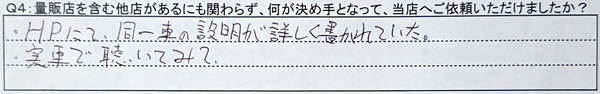 Q4：量販店を含む他店があるにも関わらず、何が決め手となって、当店へご依頼いただけましたか？
・HPにて、同一車の説明が詳しく書かれていた。
・実車で聴いてみて